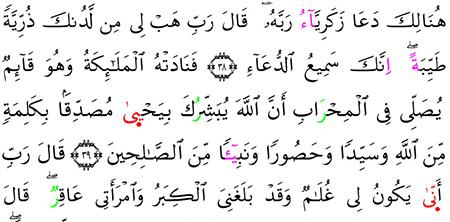 هُنَالِكَ دَعَا زَكَرِيَّآءُ رَبَّهُۥۖ قَالَ رَبِّ هَبْ لِى مِن لَّدُنكَ ذُرِّيَّةً
طَيِّبَةًۖ اِنَّكَ سَمِيعُ الدُّعَآءِ ٣٨ فَنَادَتْهُ الْمَلَـٰٓئِكَةُ وَهُوَ قَآئِمٌ
يُصَلِّى فِى الْمِحْرَابِ أَنَّ اللَّهَ يُبَشِّرُكَ بِيَحْيىٰ مُصَدِّقًا بِكَلِمَةٍ
مِّنَ اللَّهِ وَسَيِّدًا وَحَصُورًا وَنَبِيٓـًٔا مِّنَ الصَّـٰلِحِينَ ٣٩ قَالَ رَبِّ
أَنّىٰ يَكُونُ لِى غُلَـٰمٌ وَقَدْ بَلَغَنِىَ الْكِبَرُ وَامْرَأَتِى عَاقِرٌۖ قَالَ